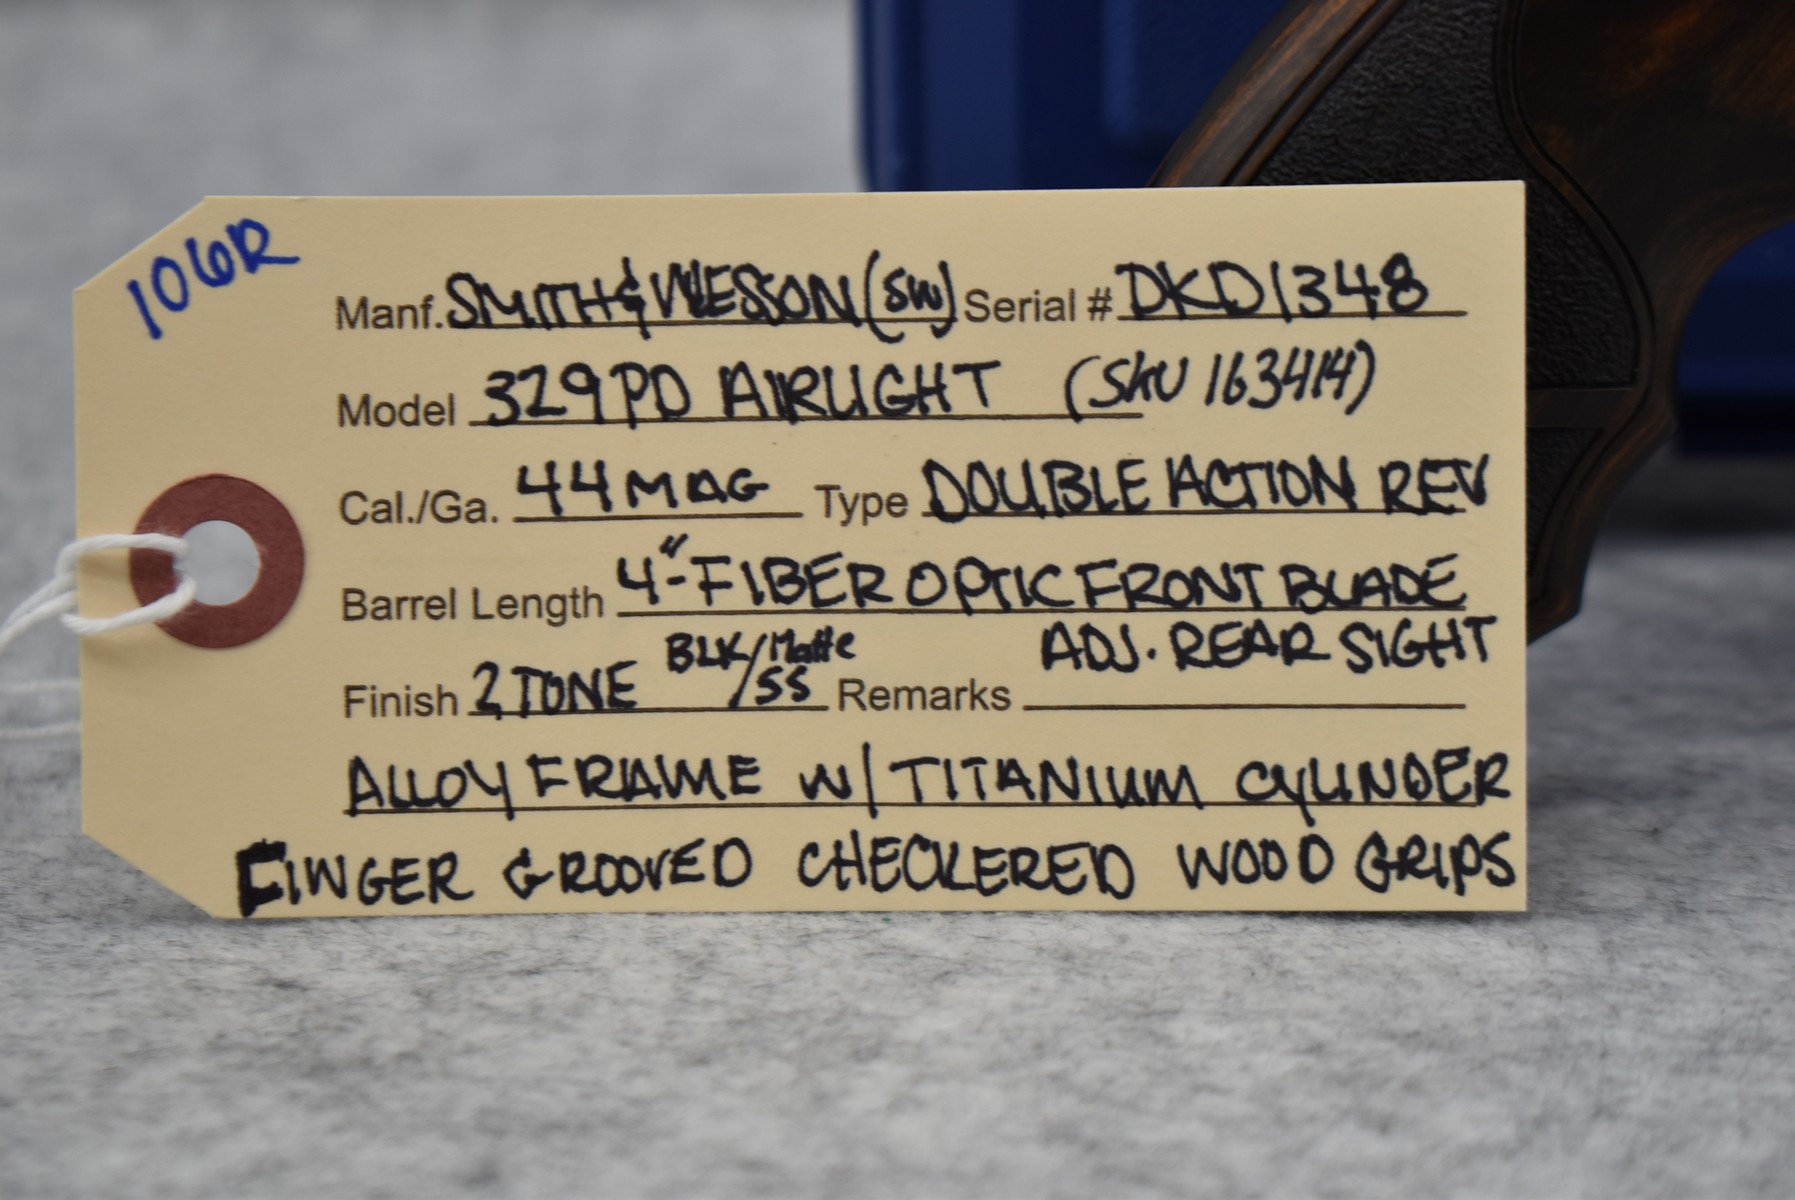 106R
Manf. SMITH & WESSON (SW) Serial # DKD1348
Model 329PD AIRLIGHT (SKU 163414)
Cal./Ga. 44 MAG Type DOUBLE ACTION REV
Barrel Length 4"-FIBER OPTIC FRONT BLADE
ADJ. REAR SIGHT
Finish 2 TONE BLK/Matte/SS Remarks
ALLOY FRAME W/ TITANIUM CYLINDER
FINGER GROOVED CHECKERED WOOD GRIPS